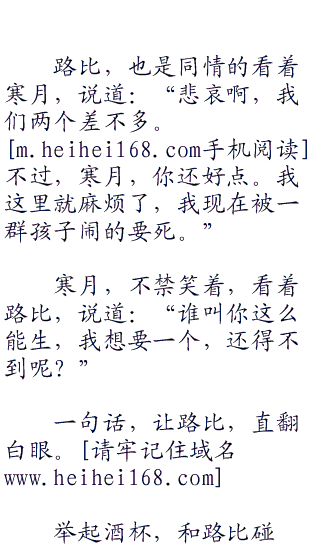 路比，也是同情的看着
寒月，说道：“悲哀啊，我
们两个差不多。
[m.heihei168.com手机阅读]
不过，寒月，你还好点。我
这里就麻烦了，我现在被一
群孩子闹的要死。”
寒月，不禁笑着，看着
路比，说道：“谁叫你这么
能生，我想要一个，还得不
到呢？”
一句话，让路比，直翻
白眼。[请牢记住域名
www.heihei168.com]
举起酒杯，和路比碰